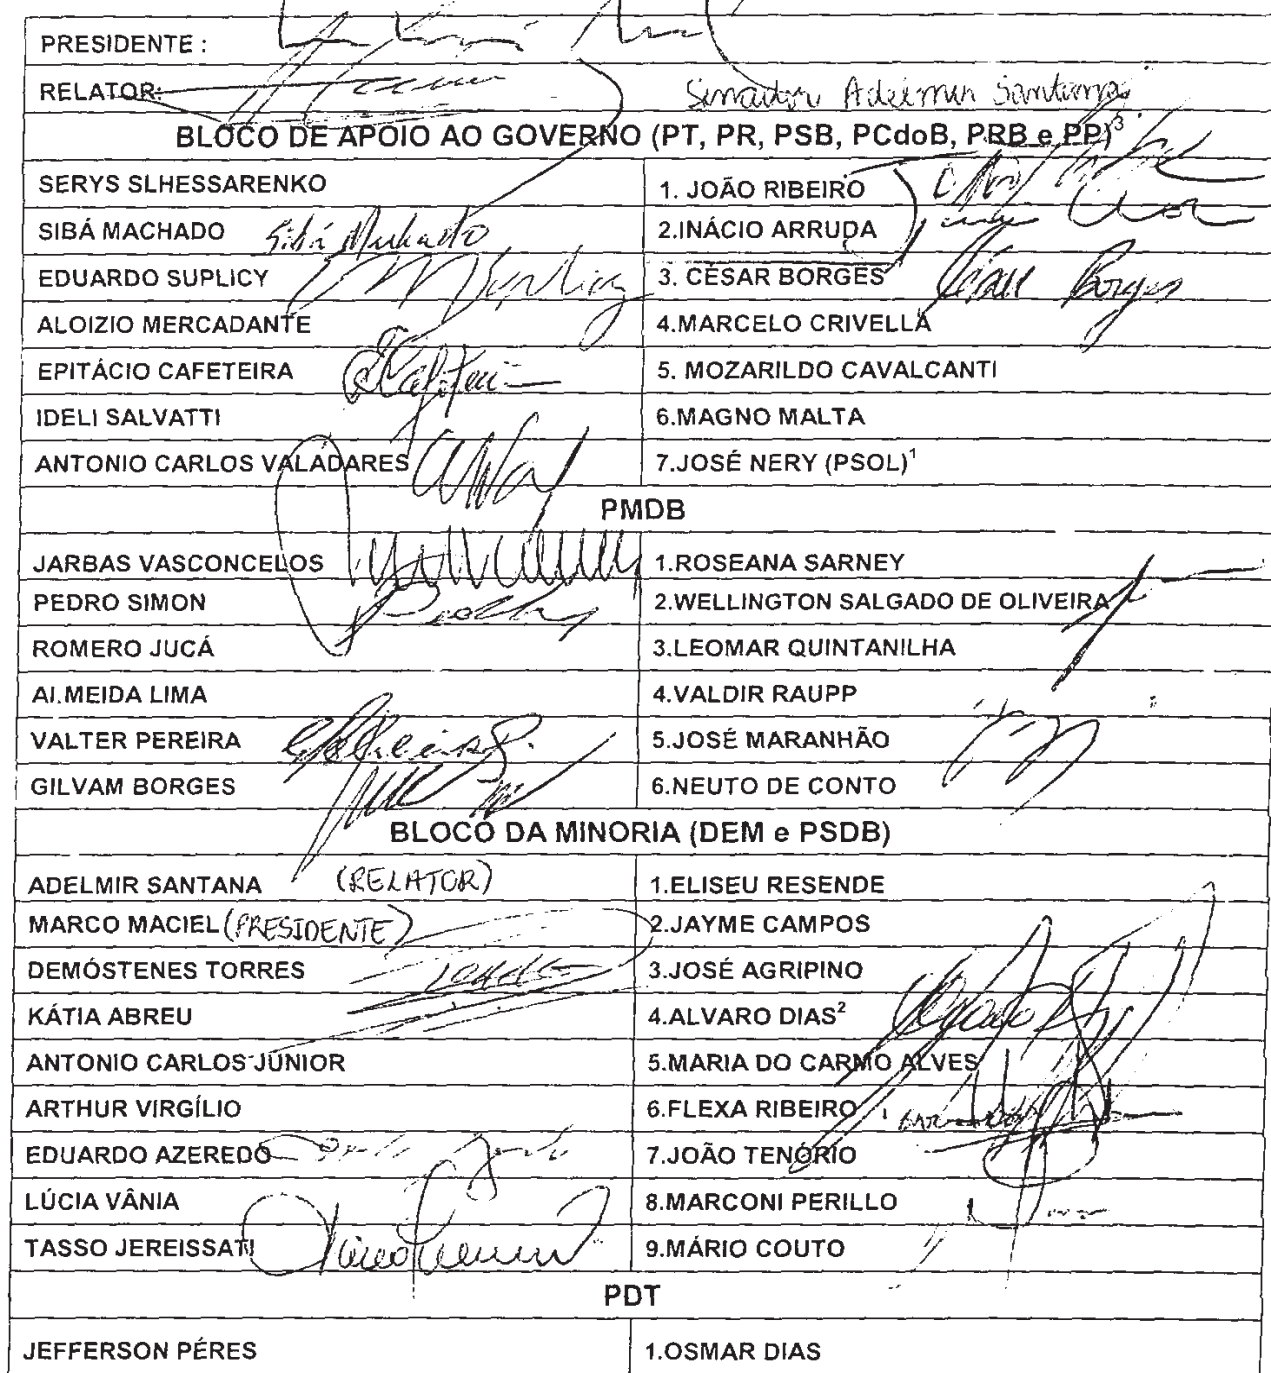 PRESIDENTE :
RELATOR: Senador Adelmir Santana
BLOCO DE APOIO AO GOVERNO (PT, PR, PSB, PCdoB, PRB e PP)³
SERYS SLHESSARENKO 1. JOÃO RIBEIRO
SIBÁ MACHADO Sibá Machado 2.INÁCIO ARRUDA
EDUARDO SUPLICY Suplicy 3. CÉSAR BORGES César Borges
ALOIZIO MERCADANTE 4.MARCELO CRIVELLA
EPITÁCIO CAFETEIRA 5. MOZARILDO CAVALCANTI
IDELI SALVATTI 6.MAGNO MALTA
ANTONIO CARLOS VALADARES 7.JOSÉ NERY (PSOL)¹
PMDB
JARBAS VASCONCELOS 1.ROSEANA SARNEY
PEDRO SIMON 2.WELLINGTON SALGADO DE OLIVEIRA
ROMERO JUCÁ 3.LEOMAR QUINTANILHA
ALMEIDA LIMA 4.VALDIR RAUPP
VALTER PEREIRA 5.JOSÉ MARANHÃO
GILVAM BORGES 6.NEUTO DE CONTO
BLOCO DA MINORIA (DEM e PSDB)
ADELMIR SANTANA (RELATOR) 1.ELISEU RESENDE
MARCO MACIEL (PRESIDENTE) 2.JAYME CAMPOS
DEMÓSTENES TORRES 3.JOSÉ AGRIPINO
KÁTIA ABREU 4.ALVARO DIAS²
ANTONIO CARLOS JÚNIOR 5.MARIA DO CARMO ALVES
ARTHUR VIRGÍLIO 6.FLEXA RIBEIRO
EDUARDO AZEREDO 7.JOÃO TENÓRIO
LÚCIA VÂNIA 8.MARCONI PERILLO
TASSO JEREISSATI 9.MÁRIO COUTO
PDT
JEFFERSON PÉRES 1.OSMAR DIAS